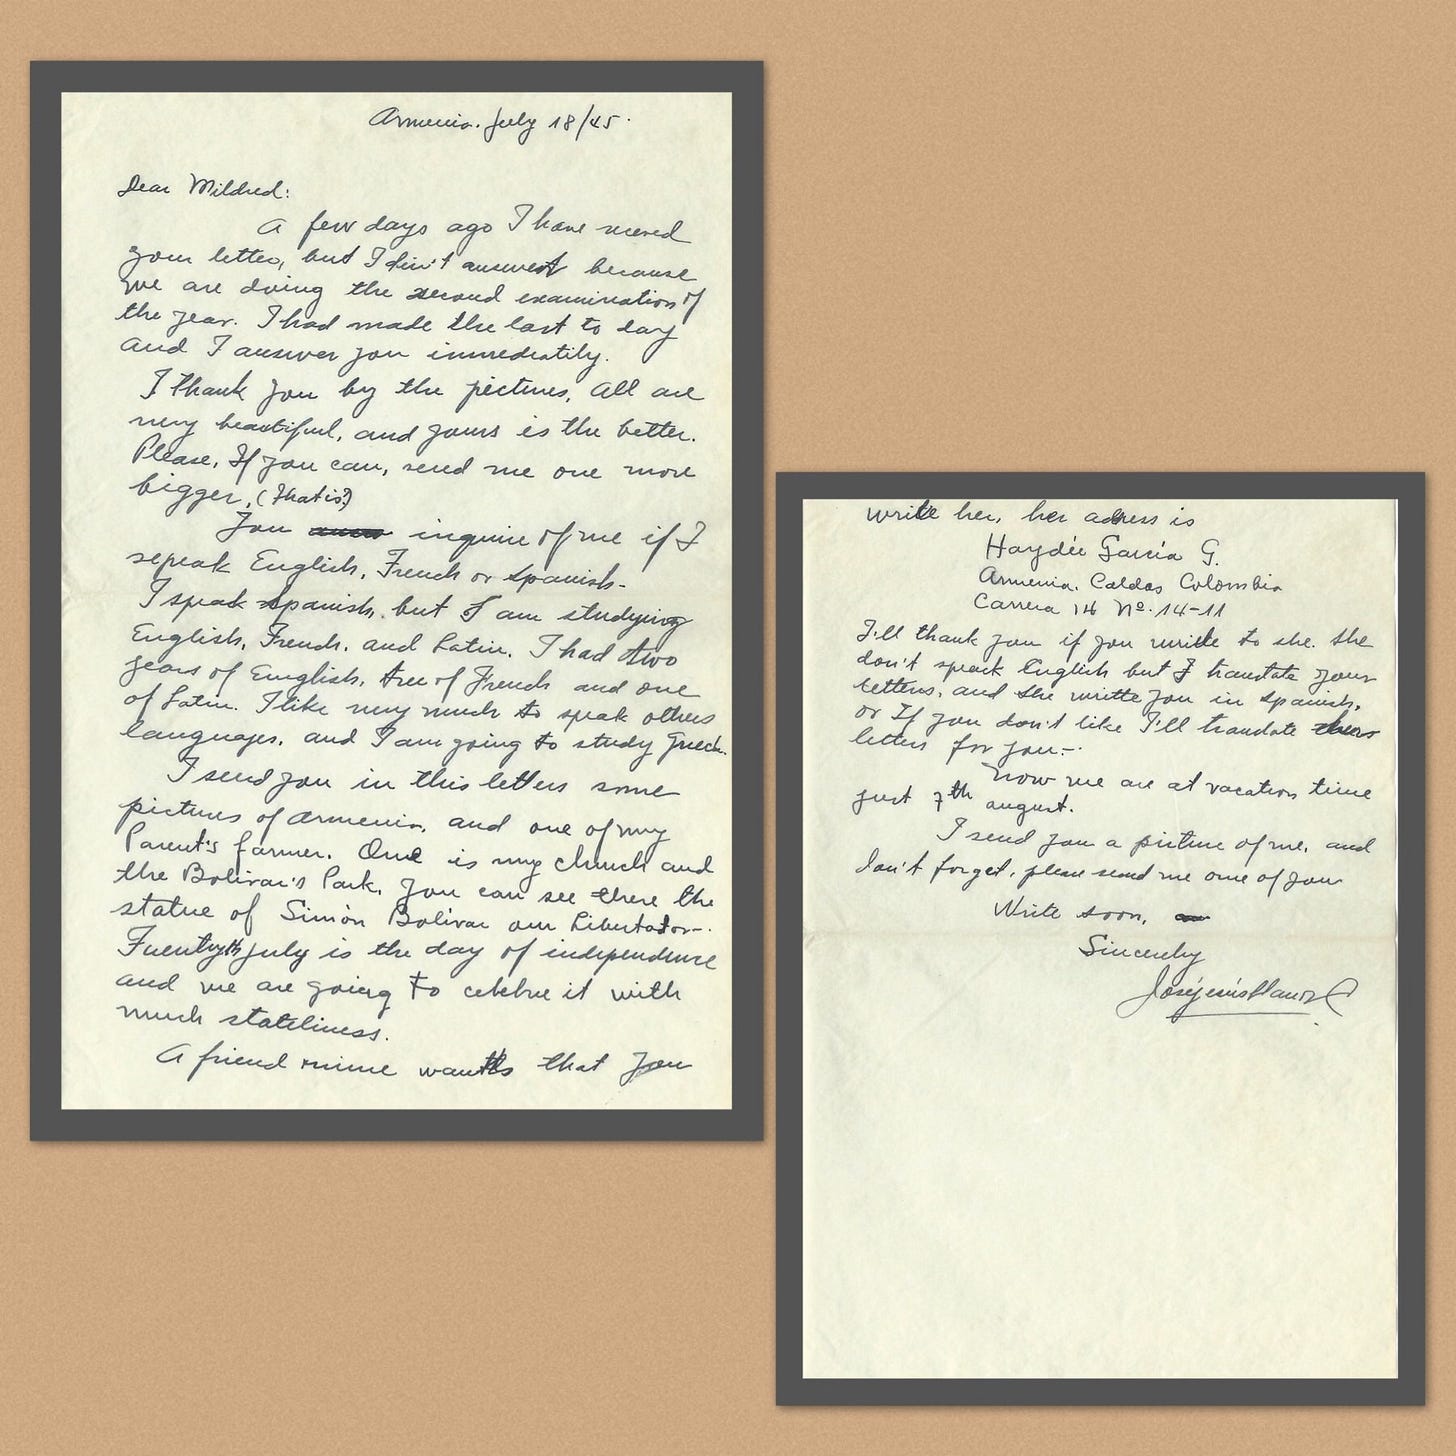 Armenia. July 18/45.
Dear Mildred:
A few days ago I have
your letter, but I din't answert because
we are doing the second examination of
the year. I had made the last to day
and I answer you immediatily.
I thank you by the pictures, all are
very beautiful, and yours is the better.
Please, If you can, send me one more
bigger, (that is?)
You inquire of me if I
speak English, French or Spanish-
I speak Spanish, but I am studying
English, French, and Latin. I had two
years of English, tree of French and one
of Latin. I like very much to speak others
languages, and I am going to study Greek.
I send you in this letters some
pictures of Armenia, and one of my
Parent's farmer. One is my church and
the Bolivar's Park. You can see there the
statue of Simón Bolívar our Libertador-.
Twentyth july is the day of independence
and we are going to it with
much stateliness.
A friend mine wants that you
write her, her adress is
Haydée García G.
Armenia. Caldas Colombia
Carrera 14 Nº. 14-11
I'll thank you if you write to she. She
don't speak English but I translate your
letters, and she writte you in Spanish,
or If you don't like I'll translate
letters for you-.
Now we are at vacation time
just 7th august.
I send you a picture of me, and
don't forget, please send me one of you
Write soon,
Sincerely